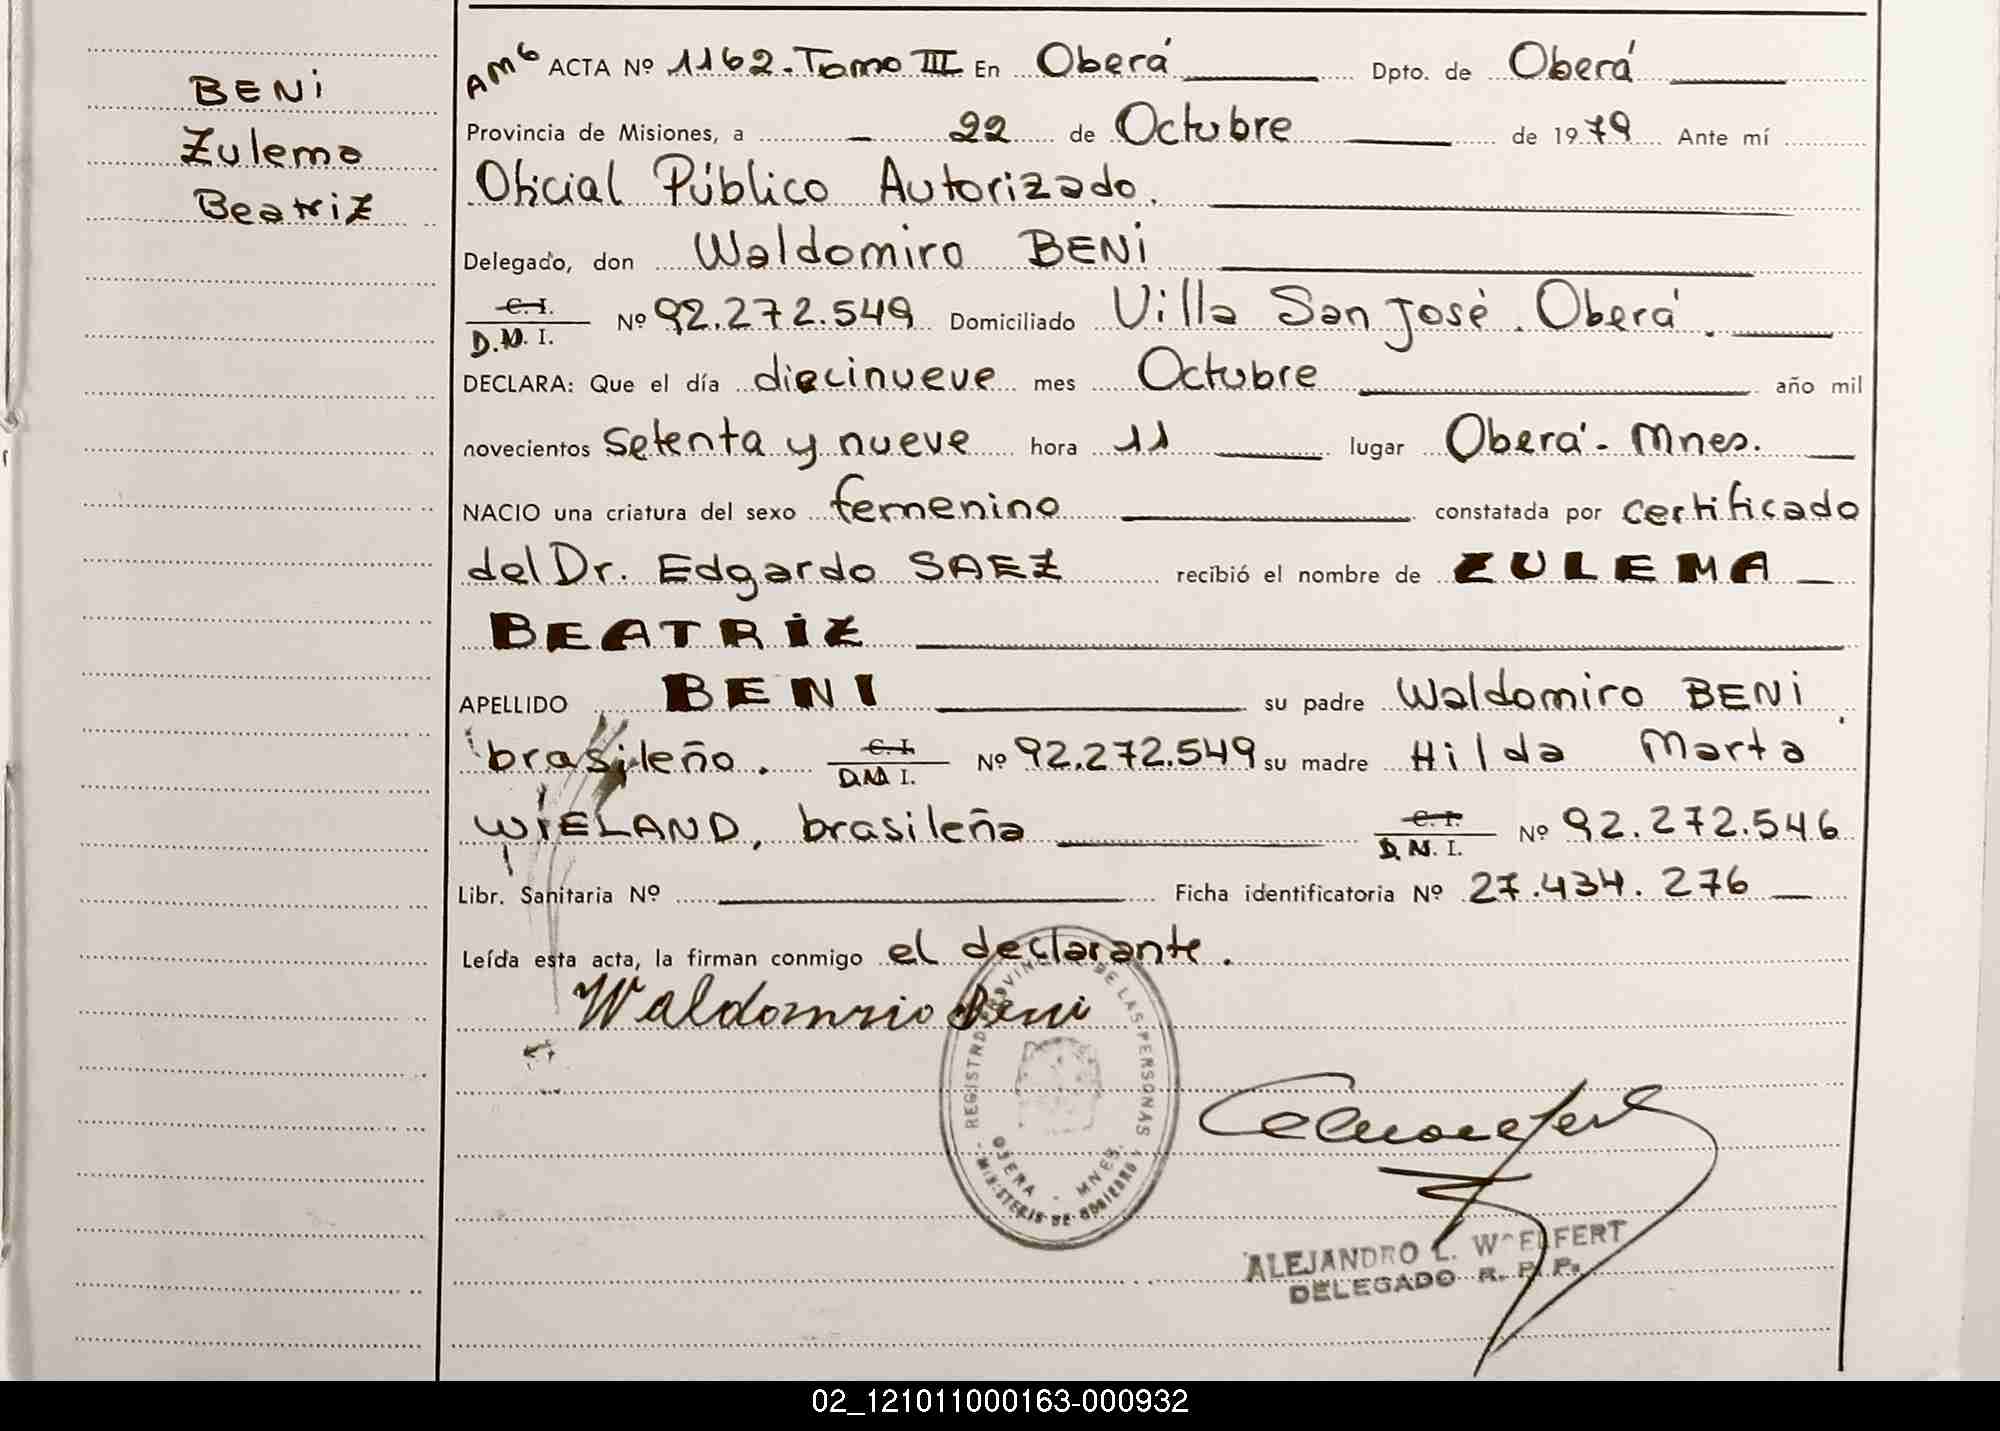 BENi
Zulema
Beatriz
AM6 ACTA Nº 1162. Tomo III En Oberá Dpto. de Oberá
Provincia de Misiones, a 22 de Octubre de 1979 Ante mí
Oficial Público Autorizado.
Delegado, don Waldomiro BENi
C. I.
D.N. I. Nº 92.272.549 Domiciliado Villa San José. Oberá.
DECLARA: Que el día diecinueve mes Octubre año mil
novecientos setenta y nueve hora 11 lugar Oberá - Mnes.
NACIO una criatura del sexo femenino constatada por certificado
del Dr. Edgardo SAEZ recibió el nombre de ZULEMA
BEATRIZ
APELLIDO BENI su padre Waldomiro BENi,
brasileño. C. I.
D.N I. Nº 92.272.549 su madre Hilda Marta
WIELAND, brasileña C. I.
D. N. I. Nº 92.272.546
Libr. Sanitaria Nº Ficha identificatoria Nº 27.434.276
Leída esta acta, la firman conmigo el declarante.
Waldomrio Beni
REGISTRO PROVINCIAL DE LAS PERSONAS
OBERA - MNES.
MINISTERIO DE GOBIERNO
ALEJANDRO L. WOELFERT
DELEGADO R. P. P.
02_121011000163-000932